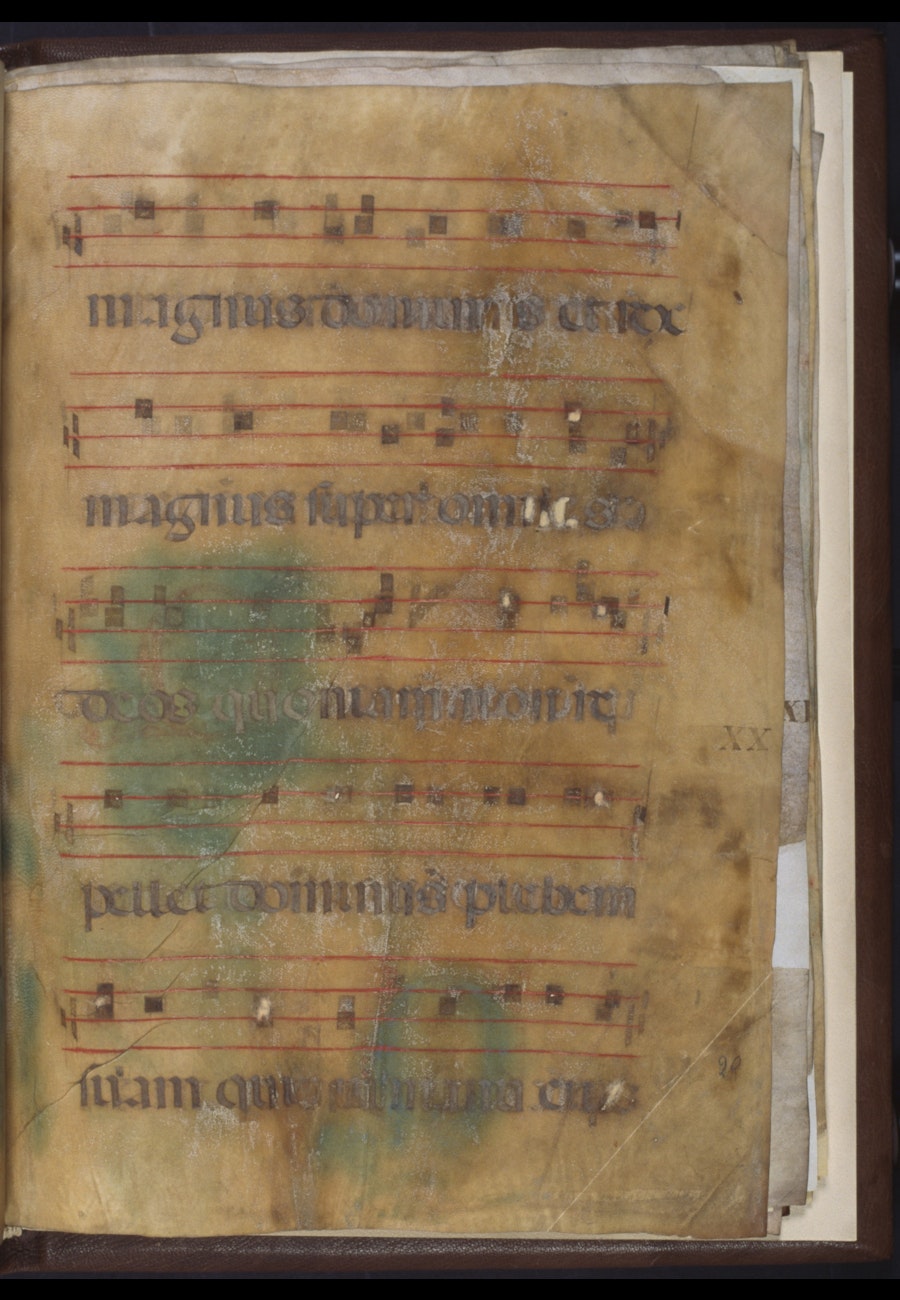 magnus dominus et rex
magnus super omnes
deos quoniam non re
pellet dominus plebem
suam quia in manu eius
XX
20